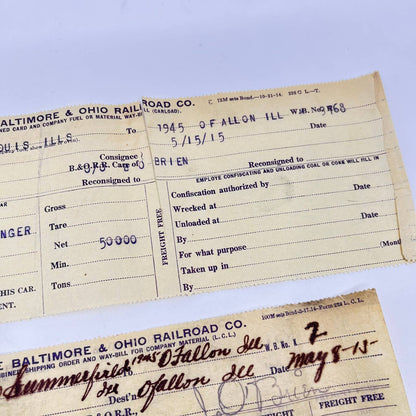 C 75M sets Bond.—10-31-14.
BALTIMORE & OHIO RAILROAD CO.
NED CARD AND COMPANY FUEL OR MATERIAL WAY-BILL (CARLOAD).
W.B. No.
To
1945 OFALLON ILL
OUIS ILLS
5/15/15
Date
Consignee
B.&O.R.R. Care of
BRIEN
Reconsigned to
Reconsigned to
Date
EMPLOYE CONFISCATING AND UNLOADING COAL OR COKE WILL FILL IN
Confiscation authorized by
Date
Wrecked at
Date
Unloaded at
Date
By
For what purpose
Taken up in
(Mont
By
FREIGHT FREE
Gross
Tare
Net 50000
Min.
Tons
NGER
HIS CAR.
ENT.
BALTIMORE & OHIO RAILROAD CO.
SHIPPING ORDER AND WAY-BILL FOR COMPANY MATERIAL (L. C. L.)
W. B. No. 2
Summerfield
1945 OFallon Ill
Ill
Dest'n
Ofallon Ill
Date May 8-15
O'Brien
FREIGHT FREE